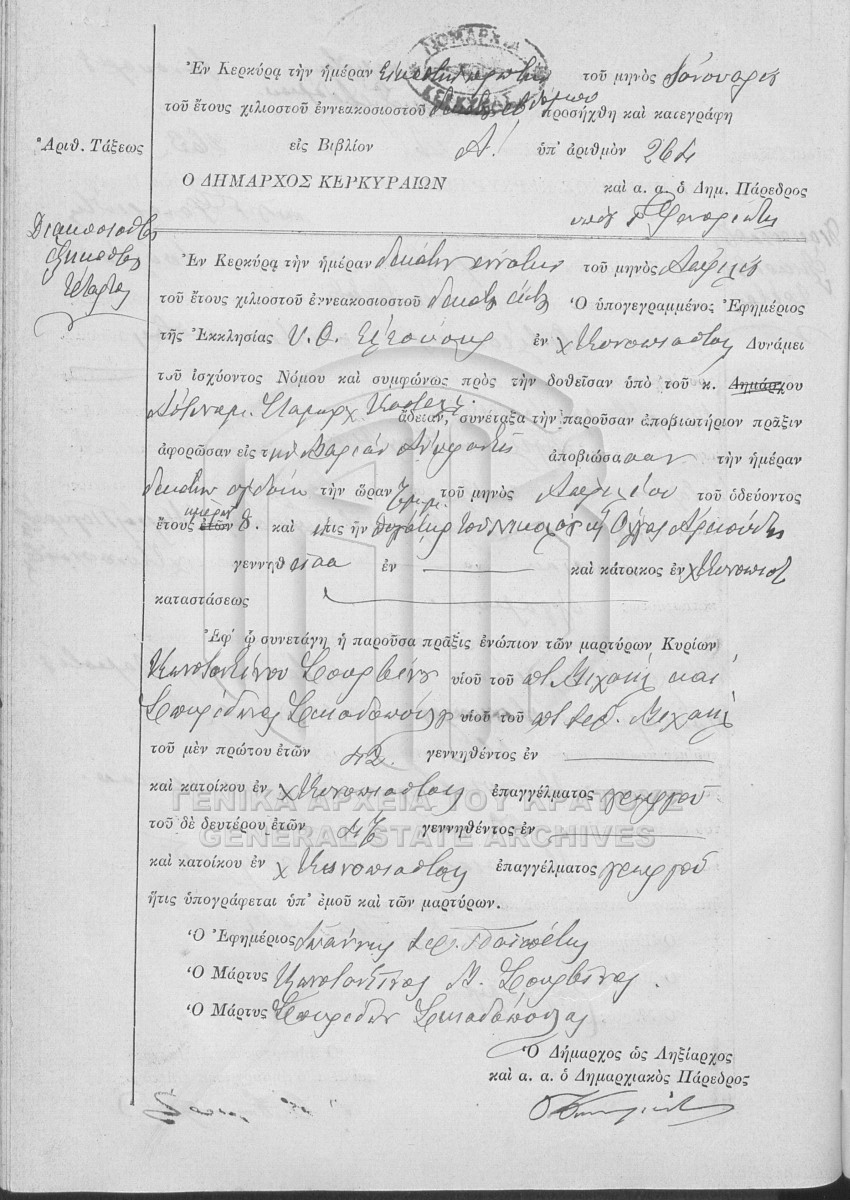 ΝΟΜΑΡΧΙΑ ΚΕΡΚΥΡΑΣ
Ἐν Κερκύρᾳ τὴν ἡμέραν εἰκοστὴν πρώτην τοῦ μηνὸς Ἰανουαρίου
τοῦ ἔτους χιλιοστοῦ ἐννεακοσιοστοῦ προσήχθη καὶ κατεγράφη
Ἀριθ. Τάξεως
εἰς Βιβλίον Α' ὑπ' ἀριθμὸν 264
Ο ΔΗΜΑΡΧΟΣ ΚΕΡΚΥΡΑΙΩΝ
καὶ α. α. ὁ Δημ. Πάρεδρος
Διακοσιοστὸν
ἑξηκοστὸν
τέταρτον
Ἐν Κερκύρᾳ τὴν ἡμέραν δεκάτην ἐννάτην τοῦ μηνὸς Ἀπριλίου
τοῦ ἔτους χιλιοστοῦ ἐννεακοσιοστοῦ Ὁ ὑπογεγραμμένος Ἐφημέριος
τῆς Ἐκκλησίας Υ. Θ. ἐν χ Κυνοπιάσταις Δυνάμει
τοῦ ἰσχύοντος Νόμου καὶ συμφώνως πρὸς τὴν δοθεῖσαν ὑπὸ τοῦ κ. Δημάρχου
ἄδειαν, συνέταξα τὴν παροῦσαν ἀποβιωτήριον πρᾶξιν
ἀφορῶσαν εἰς τὴν Μαρίαν ἀποβιώσασαν τὴν ἡμέραν
δεκάτην ὀγδόην τὴν ὥραν τοῦ μηνὸς Ἀπριλίου τοῦ ὁδεύοντος
ἔτους ἐτῶν ἡμερῶν καὶ ἥτις ἦν θυγάτηρ τοῦ Νικολάου
γεννηθεῖσα ἐν καὶ κάτοικος ἐν χ Κυνοπιάστ
καταστάσεως
Ἐφ' ᾧ συνετάγη ἡ παροῦσα πρᾶξις ἐνώπιον τῶν μαρτύρων Κυρίων
Κωνσταντίνου Σουρβίνου υἱοῦ τοῦ ποτὲ Μιχαὴλ καὶ
Σπυρίδωνος Σκιαδοπούλου υἱοῦ τοῦ ποτὲ Μιχαὴλ
τοῦ μὲν πρώτου ἐτῶν 42 γεννηθέντος ἐν
καὶ κατοίκου ἐν χ Κυνοπιάσταις ἐπαγγέλματος γεωργοῦ
ΓΕΝΙΚΑ ΑΡΧΕΙΑ ΤΟΥ ΚΡΑΤΟΥΣ
τοῦ δὲ δευτέρου ἐτῶν 47 γεννηθέντος ἐν
GENERAL STATE ARCHIVES
καὶ κατοίκου ἐν χ Κυνοπιάσταις ἐπαγγέλματος γεωργοῦ
ἥτις ὑπογράφεται ὑπ' ἐμοῦ καὶ τῶν μαρτύρων.
Ὁ Ἐφημέριος Ἰωάννης
Ὁ Μάρτυς Κωνσταντῖνος Μ. Σουρβίνος.
Ὁ Μάρτυς Σπυρίδων Σκιαδόπουλος
Ὁ Δήμαρχος ὡς Ληξίαρχος
καὶ α. α. ὁ Δημαρχιακὸς Πάρεδρος